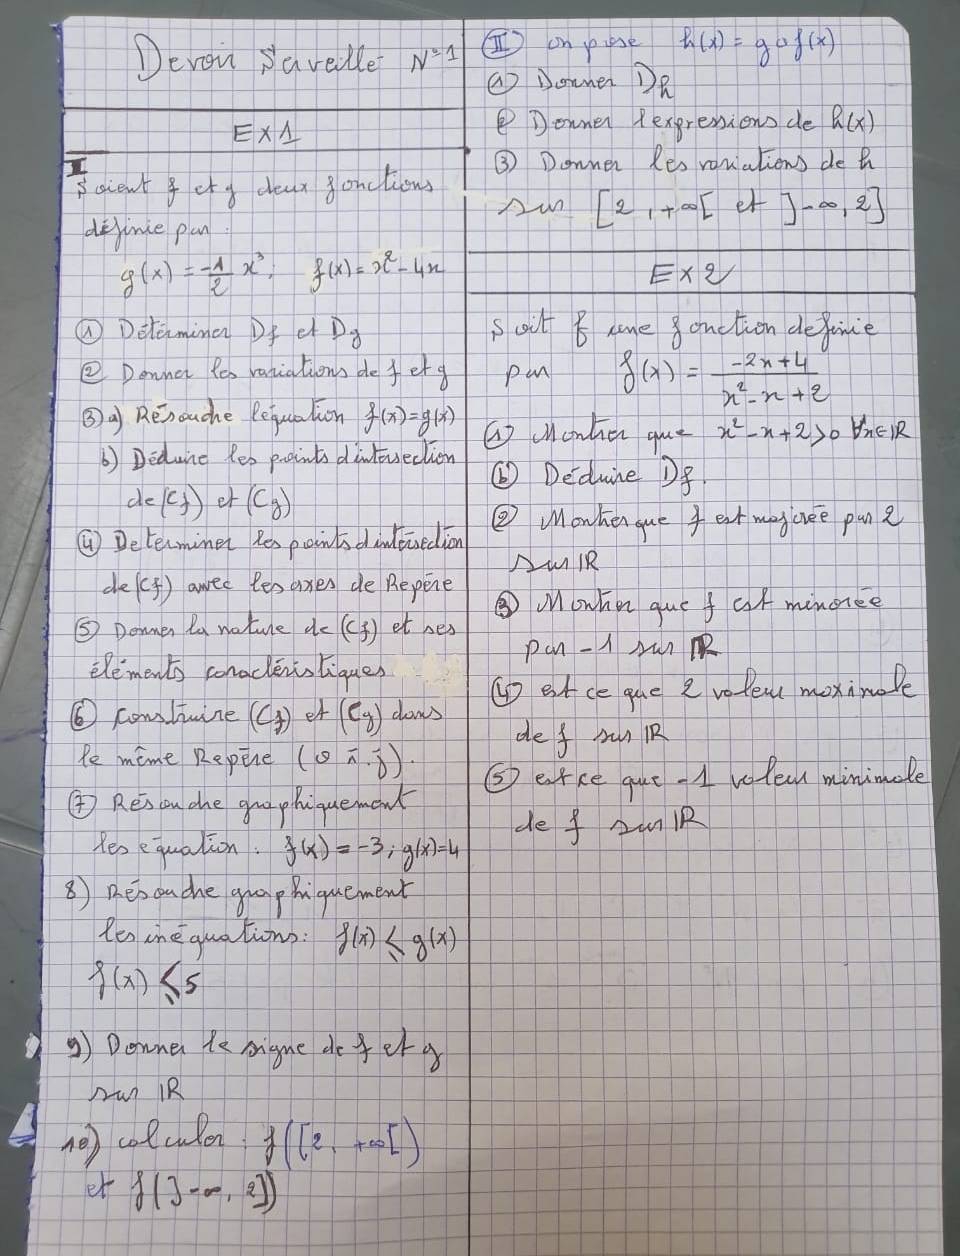 Devoir Surveille N°1
EX1
I
Soient f et g deux fonctions
définie par :
g(x) = -1/2 x³ ; f(x) = x² - 4x
① Déterminer Df et Dg
② Donner les variations de f et g
③ a) Résoudre l'équation f(x) = g(x)
b) Déduire les points d'intersection
de (Cf) et (Cg)
④ Determiner les points d'intersection
de (Cf) avec les axes de Repère
⑤ Donner la nature de (Cf) et ses
éléments caractéristiques
⑥ construire (Cf) et (Cg) dans
le même Repère (o i, j).
⑦ Résoudre graphiquement
les équation : f(x) = -3 ; g(x) = 4
8) Résoudre graphiquement
les inéquations : f(x) ⩽ g(x)
f(x) ⩽ 5
9) Donner le signe de f et g
sur IR
10) calculer : f([2, +∞[)
et f(]-∞, 2])
II on pose h(x) = g o f(x)
① Donner Dh
② Donner l'expressions de h(x)
③ Donner les variations de h
sur [2, +∞[ et ]-∞, 2]
EX2
Soit f une fonction definie
par f(x) = (-2x+4)/(x²-x+2)
① Montrer que x²-x+2>0 ∀x∈IR
ⓑ Déduire Df.
② Montrer que f est majorée par 2
sur IR
③ Montrer que f est minorée
par -1 sur IR
④ est ce que 2 valeur maximale
de f sur IR
⑤ est ce que -1 valeur minimale
de f sur IR